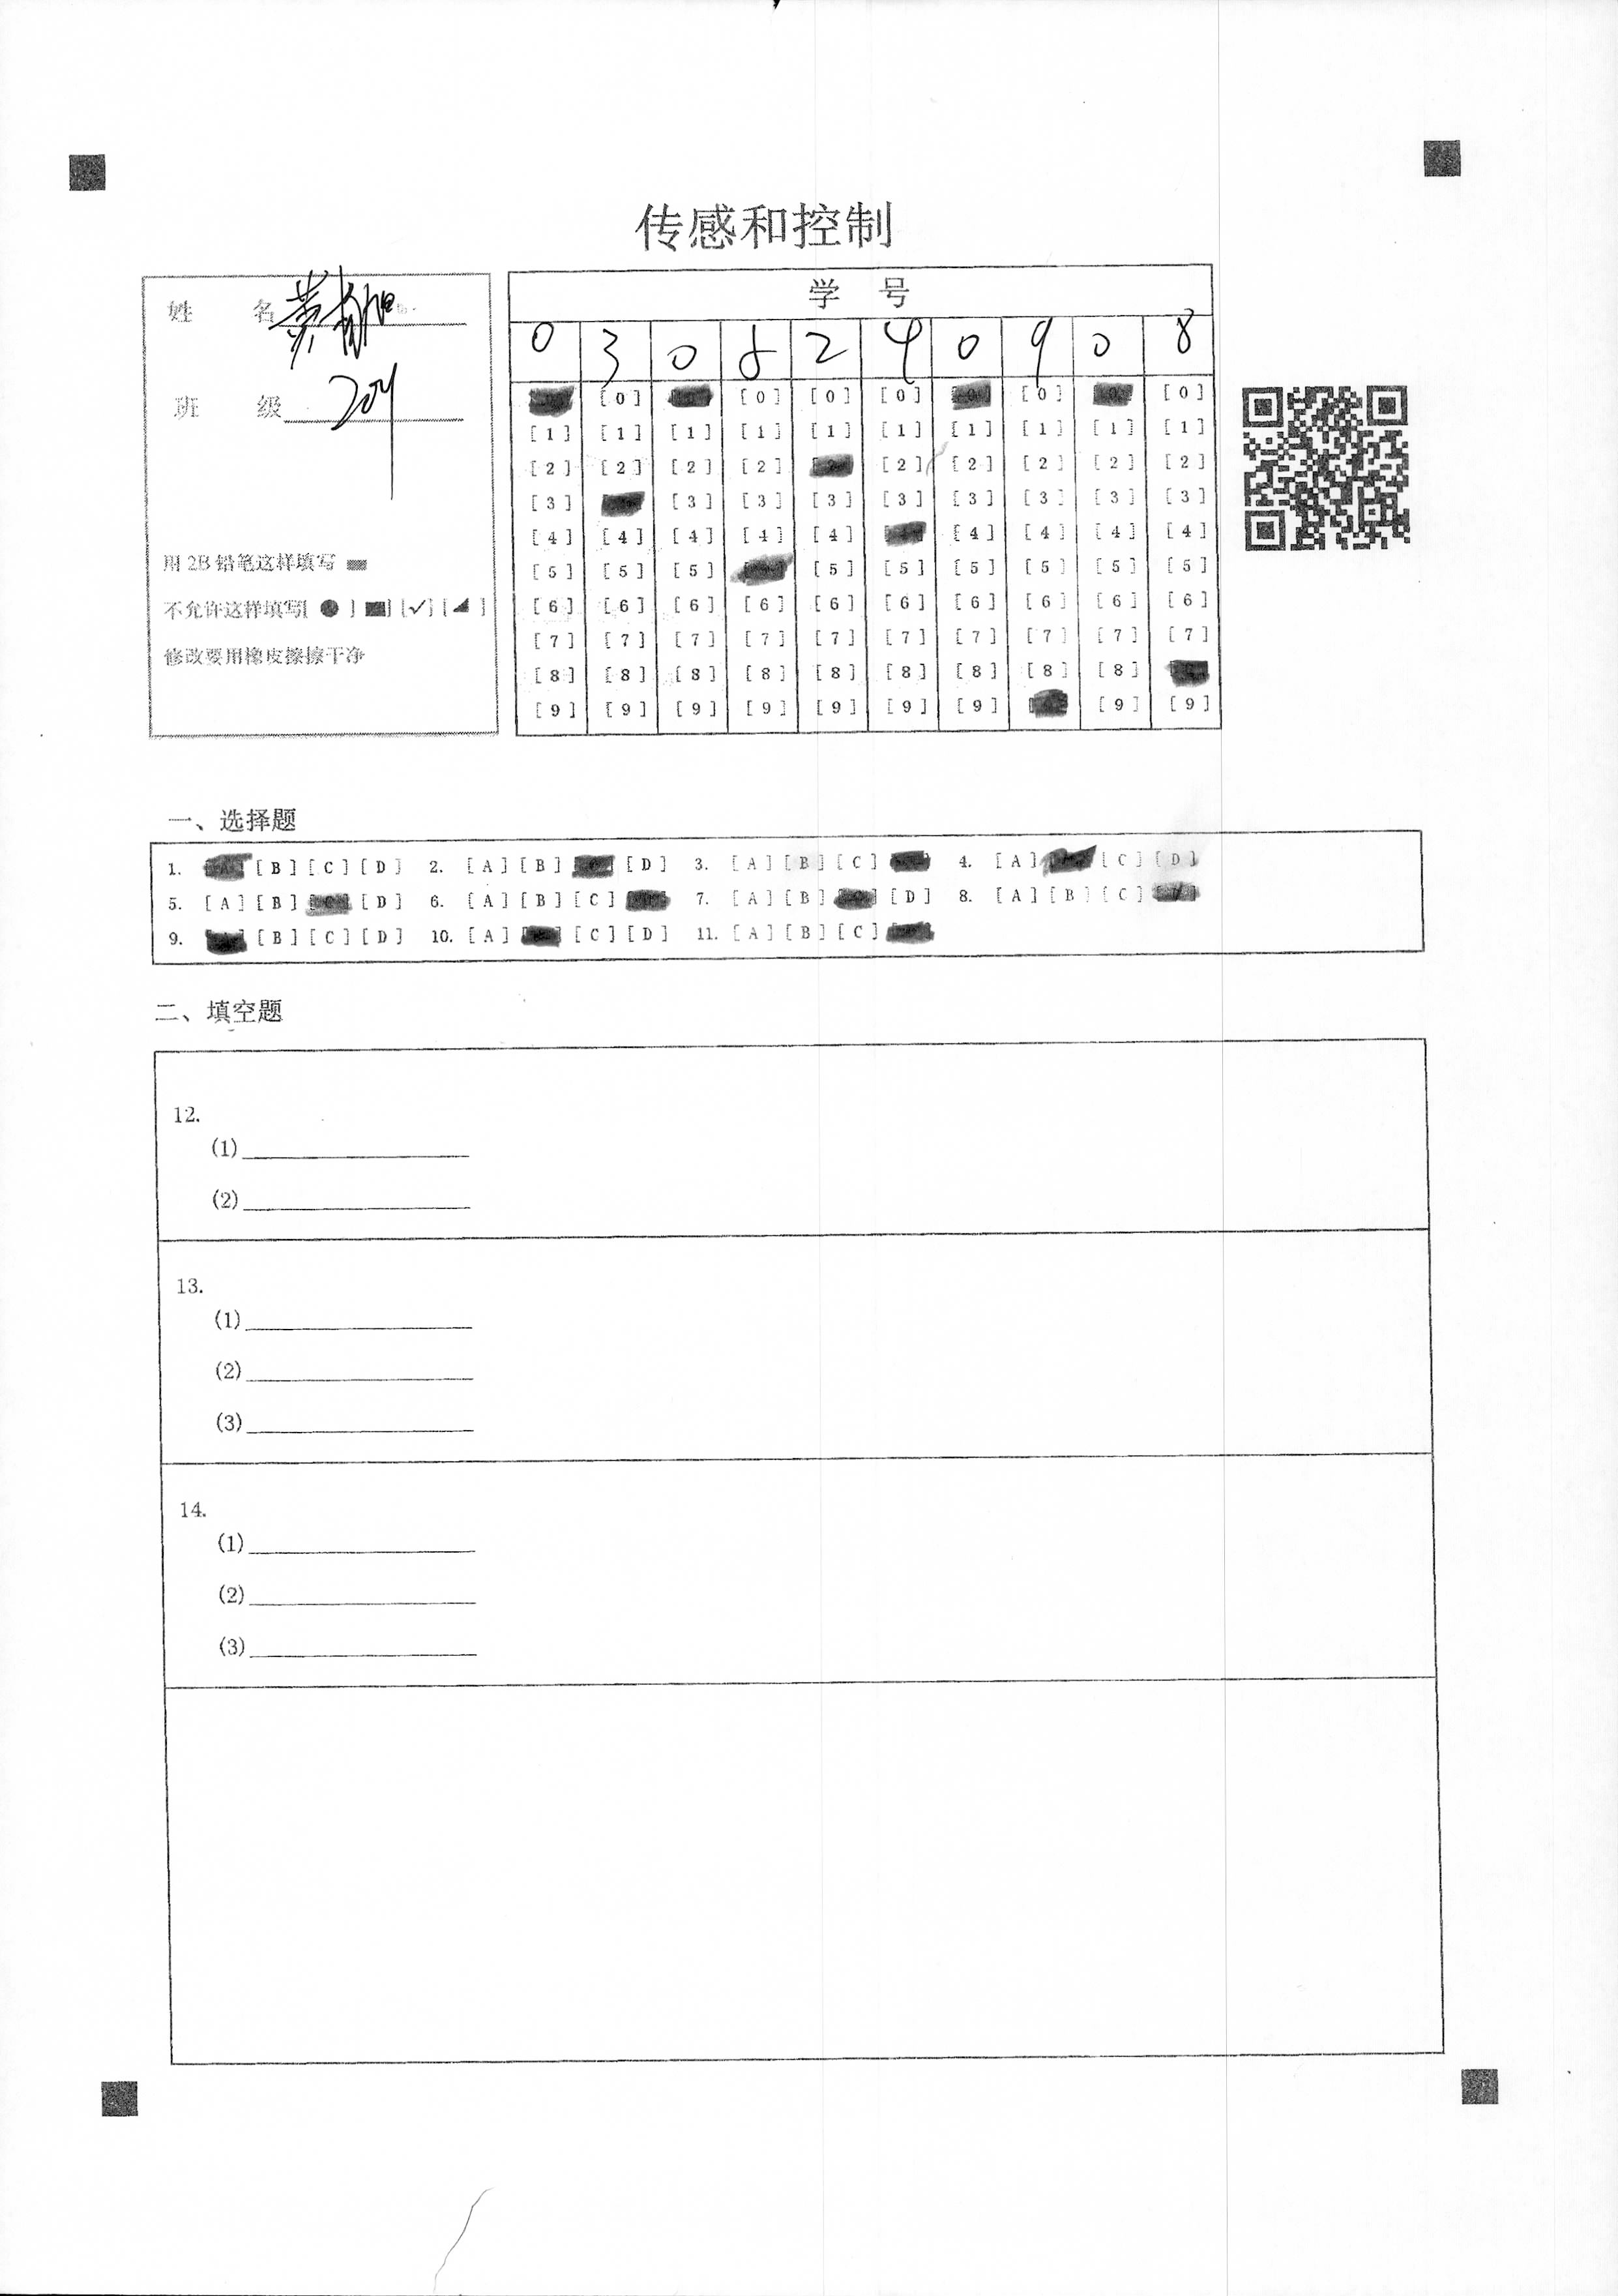 传感和控制
姓 名 黄
班 级 204
用 2B 铅笔这样填写
不允许这样填写[ ● ] [■] [✓] [◢ ]
修改要用橡皮擦擦干净
学 号
0 3 0 5 2 4 0 9 0 8
[0] [0] [0] [0] [0] [0]
[1] [1] [1] [1] [1] [1] [1] [1] [1] [1]
[2] [2] [2] [2] [2] [2] [2] [2] [2]
[3] [3] [3] [3] [3] [3] [3] [3] [3]
[4] [4] [4] [4] [4] [4] [4] [4] [4]
[5] [5] [5] [5] [5] [5] [5] [5] [5]
[6] [6] [6] [6] [6] [6] [6] [6] [6] [6]
[7] [7] [7] [7] [7] [7] [7] [7] [7] [7]
[8] [8] [8] [8] [8] [8] [8] [8] [8]
[9] [9] [9] [9] [9] [9] [9] [9] [9]
一、选择题
1. [A] [B] [C] [D] 2. [A] [B] [C] [D] 3. [A] [B] [C] [D] 4. [A] [B] [C] [D]
5. [A] [B] [C] [D] 6. [A] [B] [C] [D] 7. [A] [B] [C] [D] 8. [A] [B] [C] [D]
9. [A] [B] [C] [D] 10. [A] [B] [C] [D] 11. [A] [B] [C] [D]
二、填空题
12.
(1)
(2)
13.
(1)
(2)
(3)
14.
(1)
(2)
(3)